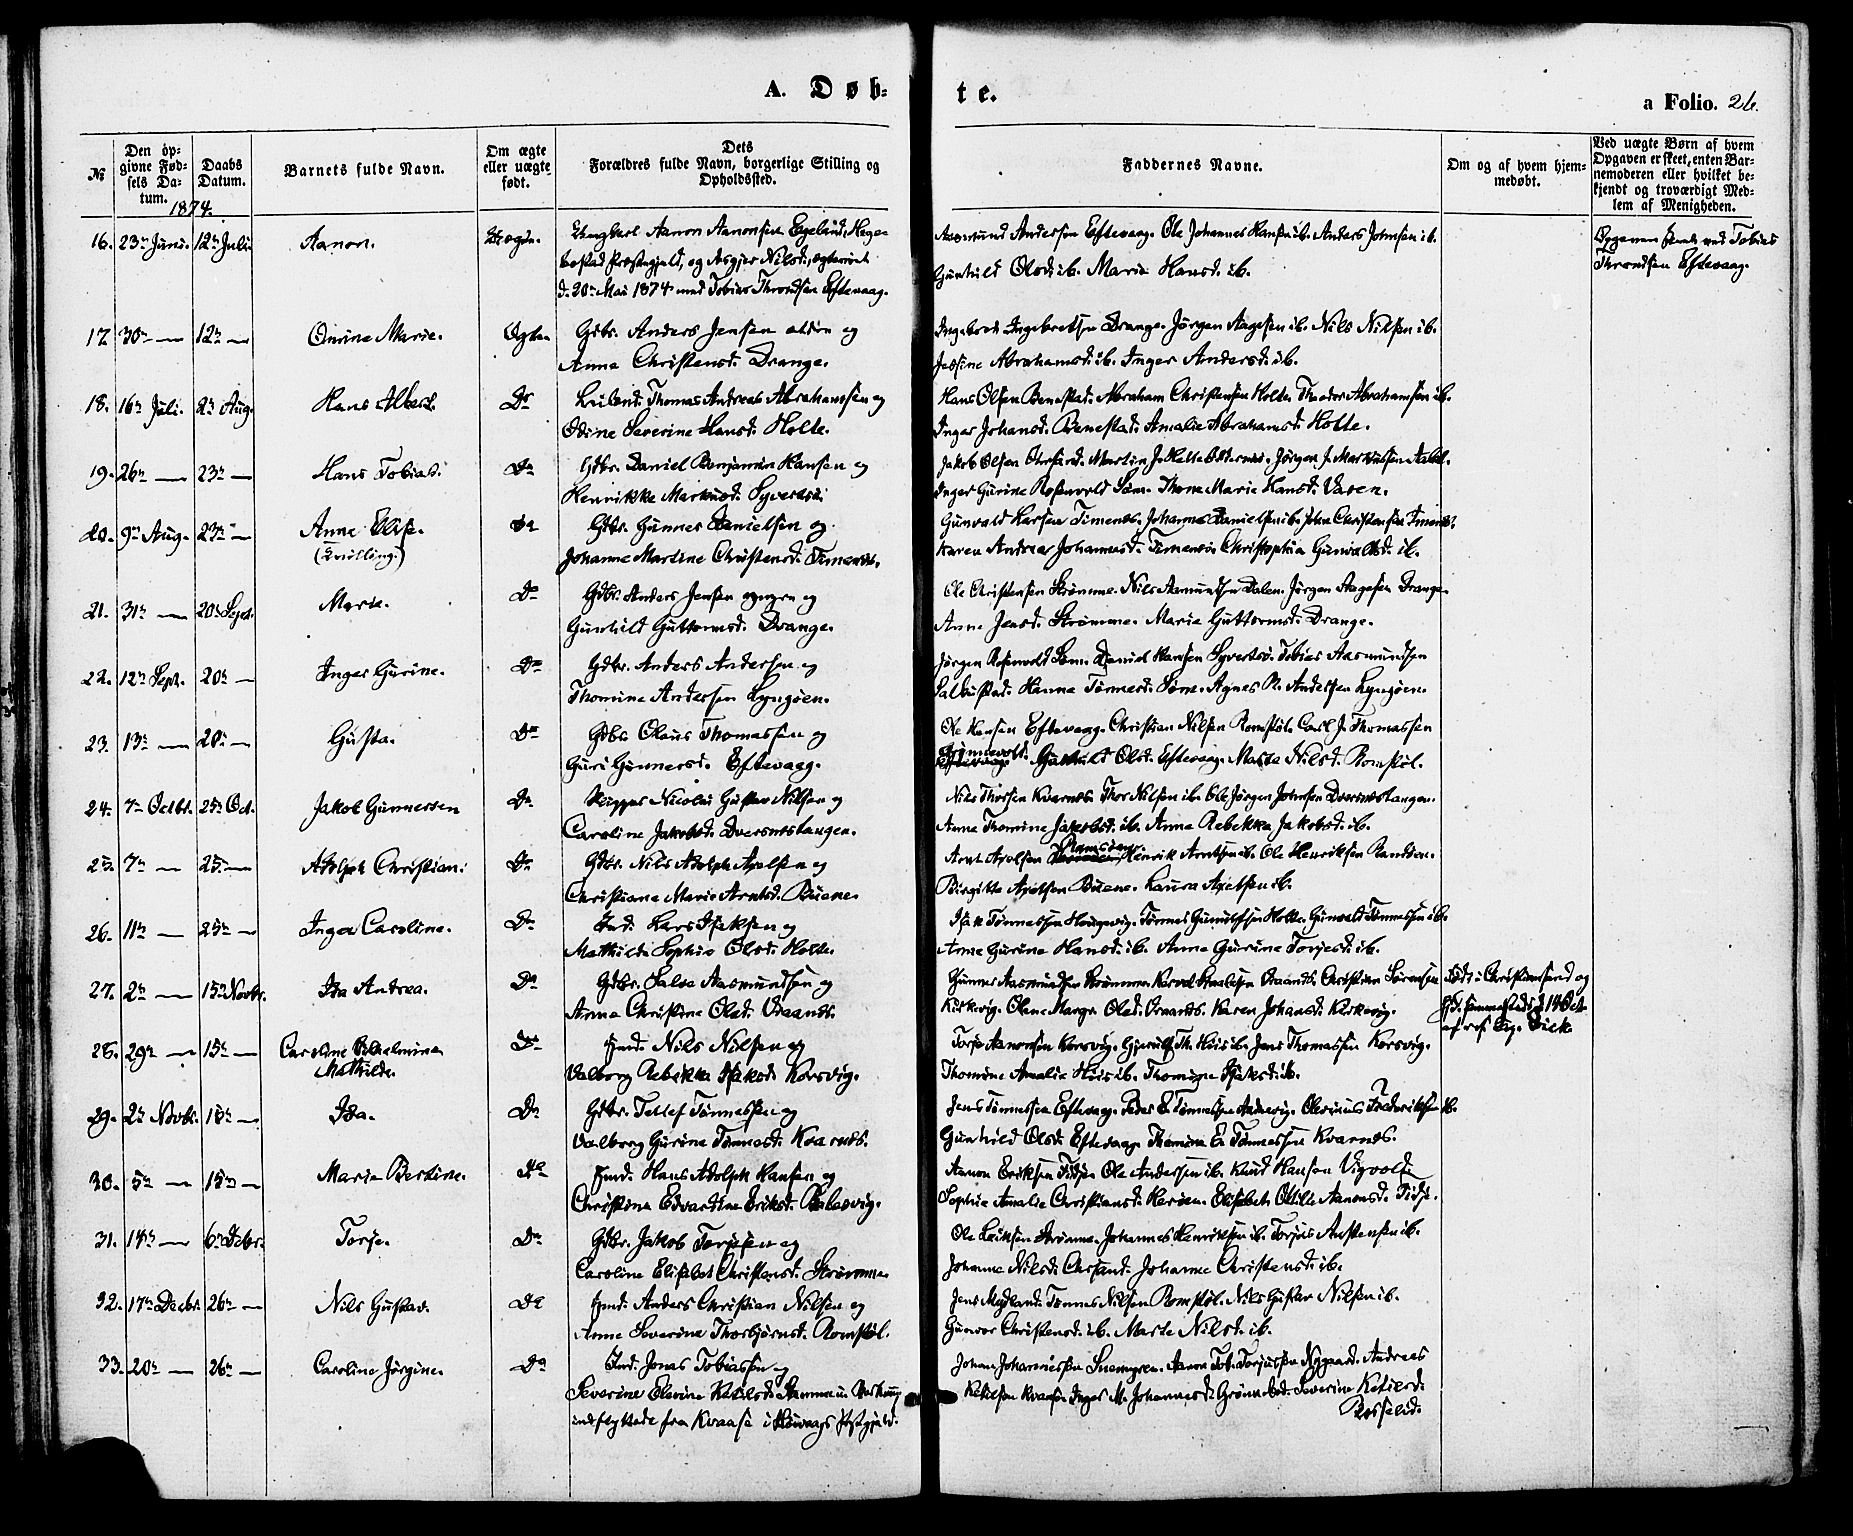 A. Døb-
te.
a Folio. 26.
№
Den op-
givne Fød-
sels Da-
tum.
1874.
Daabs
Datum.
Barnets fulde Navn.
Om ægte
eller uægte
født.
Dets
Forældres fulde Navn, borgerlige Stilling og
Opholdssted.
Faddernes Navne.
Om og af hvem hjem-
medøbt.
Ved uægte Børn af hvem
Opgaven er skeet, enten Bar-
nemoderen eller hvilket be-
kjendt og troværdigt Med-
lem af Menigheden.
16. 23de Juni. 12te Juli Aanon. Uægte. Ungkarl Aanon Aanonsen Egeland, Hæge-
bostad Præstegjeld, og Asgjer Nilsd.,
d. 20de Mai 1874 med Tobias Throndsen Eftevaag.
Aasmund Andersen Eftevaag. Ole Johannes Hansen ib. Anders Johnsen ib.
Gunhild Olsd. ib. Marie Hansd. ib.
Opgaven skeet ved Tobias
Throndsen Eftevaag.
17. 30te — 12te — Onrine Marie. Ægte Gdbr. Anders Jensen ældre og
Anna Christensd. Drange.
Ingebret Ingebretsen Drange. Jörgen Aagesen ib. Nils Nilsen ib.
Jessine Abrahamsd. ib. Inger Andersd. ib.
18. 16de Juli. 2den Aug. Hans Albert. Do Leilend. Thomas Andreas Abrahamsen og
Odine Severine Hansd. Holte.
Hans Olsen Benestad. Abraham Christensen Holte. Theodor Abrahamsen ib.
Inger Johansd. Benestad. Amalie Abrahamsd. Holte.
19. 26de — 23de — Hans Tobias. Do Gdbr. Daniel Benjamin Hansen og
Henrikke Markusd. Syvertsö.
Jakob Olsen Martin J. Helle Jörgen J. Markussen
Inger Gurine Rosenvold Söm. Thone Marie Hansd. Vasen.
20. 9de Aug. 23de — Anne Elise. Do Gdbr. Gunner Danielsen og
(Tvilling.)
Johanne Martine Christensd. Timenes.
Gunvald Larsen Timenes. Johannes Danielsen ib. John Christensen Timenes.
Karen Andrea Johannesd. Timenes. Christophia Gunvaldsd. ib.
21. 31te — 20de Sept. Marie. Do Gdbr. Anders Jensen yngre og
Gunhild Guttormsd. Drange.
Ole Christensen Strömme. Nils Aamundsen Dalen. Jörgen Aagesen Drange.
Anne Jensd. Strömme. Marie Guttormsd. Drange.
22. 12te Sept. 20de — Inger Gurine. Do Gdbr. Anders Andersen og
Thomine Andersen Lyngöen.
Jörgen Rosenvold Söm. Daniel Hansen Syvertsö. Tobias Aasmundsen
Salbustad. Hanna Tönnesd. Söm. Agnes N. Andersen Lyngöen.
23. 13de — 20de — Gusta. Do Gdbr. Olaus Thomassen og
Guri Gunnersd. Eftevaag.
Ole Hansen Eftevaag. Christian Nilsen Romstöl. Carl J. Thomassen
Grönnevold. Gunhild Olsd. Eftevaag. Marte Nilsd. Romstöl.
24. 7de Octbr. 25de Oct. Jakob Gunnersen Do Skipper Nicolai Gustav Nilsen og
Caroline Jakobsd. Dversnestangen.
Nils Thorsen Kvarnes. Thor Nilsen ib. Ole Jörgen Johnsen Dversnestangen.
Anne Thomine Jakobsd. ib. Anna Rebekka Jakobsd. ib.
25. 7de — 25de — Adolph Christian. Do Gdbr. Nils Adolph Axelsen og
Christiane Marie Arntsd. Buene.
Arnt Axelsen Henrik Arntsen ib. Ole Henriksen Randöen.
Birgitte Axelsen Buene. Laura Axelsen ib.
26. 11te — 25de — Inger Caroline. Do Ind. Lars Isaksen og
Mathilde Sophie Olsd. Holte.
Isak Tönnessen Tönnes Gunulfsen Holte. Gunvald Tönnessen ib.
Anne Gurine Hansd. ib. Anne Gurine Torjesd. ib.
27. 2den — 15de Novbr. Ida Andrea. Do Gdbr. Salve Aasmundsen og
Anna Christine Olsd. Odraanes.
Gunner Aasmundsen Strömme. Christian Sörensen
Kirkevig. Olene Margr. Olsd. Karen Johansd. Kirkevig.
Födt i Christiansand og
d. 14 Oct.
28. 29de — 15de — Caroline Wilhelmine Do Ind. Nils Nilsen og
Mathilde.
Valborg Rebekka Isaksd. Korsvig.
Torje Aanonsen Korsvig. Gjeruld Th. Höie ib. Jens Thomassen Korsvig.
Thomine Amalie Höie ib. Thomine Isaksd. ib.
29. 2den Novbr. 15de — Ida. Do Gdbr. Tellef Tönnessen og
Valborg Gurine Tönnesd. Kvarnes.
Jens Tönnessen Eftevaag. Peder E. Tönnessen Olerinus Frederiksen ib.
Gunhild Olsd. Eftevaag. Thomine E. Tönnessen Kvarnes.
30. 5te — 15de — Maria Bertine. Do Ind. Hans Adolph Hansen og
Christiane Edvardine Eriksd.
Aanon Eriksen Tidsö. Ole Andersen ib. Knud Hansen Vigvold.
Sophie Amalie Christiansd. Elisabet Ottilie Aanonsd. Tidsö.
31. 14de — 6te Decbr. Torje. Do Gdbr. Jakob Torjesen og
Caroline Elisabet Christensd. Strömme.
Ole Eriksen Strömme. Johannes Henriksen ib. Torjus Austensen ib.
Johanne Nilsd. Johanne Christensd. ib.
32. 17de Decbr. 26de — Nils Gustav. Do Ind. Anders Christian Nilsen og
Anne Severine Thorbjörnsd. Romstöl.
Jens Mydland. Tönnes Nilsen Romstöl. Nils Gustav Nilsen ib.
Gunvor Christensd. ib. Marte Nilsd. ib.
33. 20de — 26de — Caroline Jörgine. Do Ind. Jonas Tobiassen og
Severine Elevine Ketilsd.
indflyttede fra Kvaase i Hövaags Prstgjeld.
Johan Johannessen Snemyren. Aanon Tob. Torjussen Nygaard. Andreas
Ketilsen Kvaase. Inger M. Johannesd. Severine Ketilsd.
Rosselid.